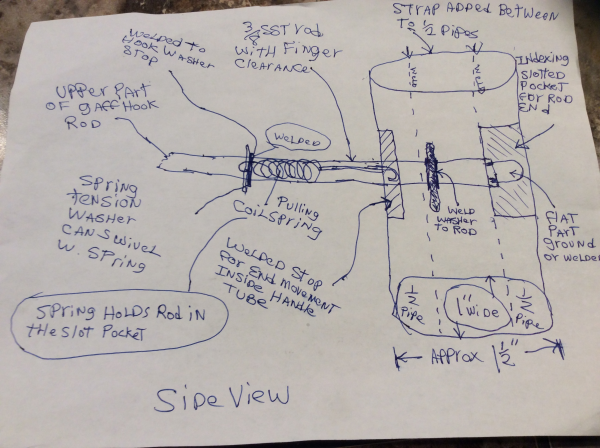 STRAP ADDED BETWEEN
TO 1/2 PIPES
WELDED TO
HOOK WASHER
STOP
3/8 SST ROD
WITH FINGER
CLEARANCE
INDEXING
SLOTTED
POCKET
FOR ROD
END
UPPER PART
OF gAFF HOOK
ROD
WELDED
SPRING
TENSION
WASHER
CAN SWIVEL
W. SPRING
Pulling
COIL SPRING
WELD
WASHER
TO ROD
FLAT
PART
ground
OR WELDED
WELDED STOP
FOR END MOVEMENT
INSIDE HANDLE
TUBE
SPRING HOLDS ROD IN
the SLOT POCKET
1/2
PIPE
1" WIDE
1/2
PIPE
APPROX 1 1/2"
SIDE VIEW